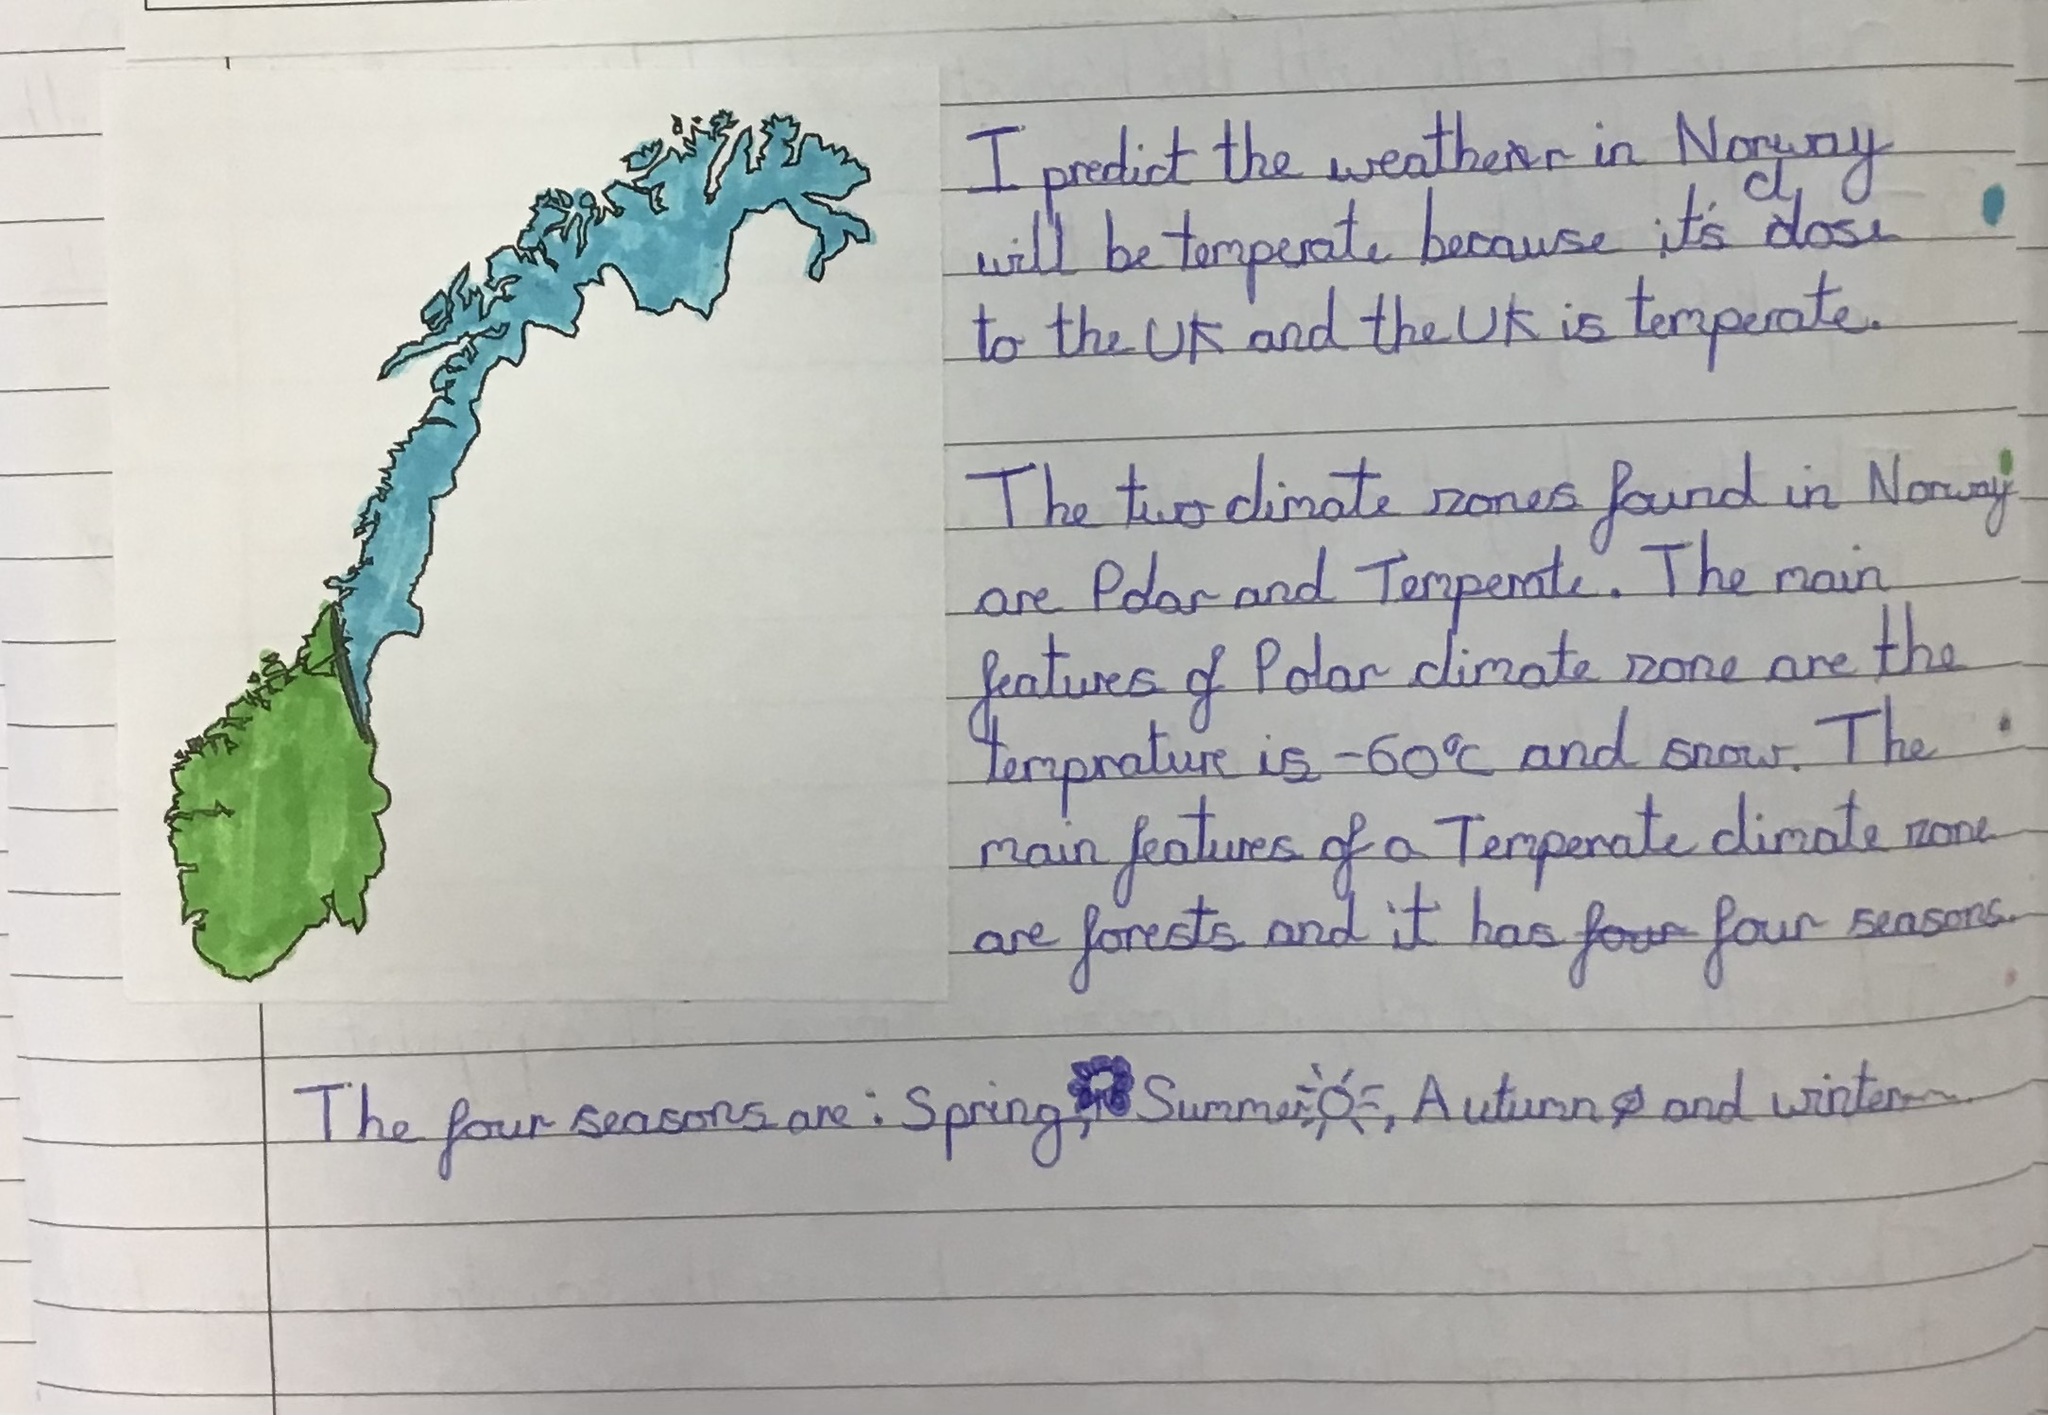 I predict the weather in Norway
will be temperate because it's close
to the UK and the UK is temperate.
The two climate zones found in Norway
are Polar and Temperate. The main
features of Polar climate zone are the
temprature is -60°c and snow. The
main features of a Temperate climate zone
are forests and it has four four seasons.
The four seasons are: Spring, Summer, Autumn and winter